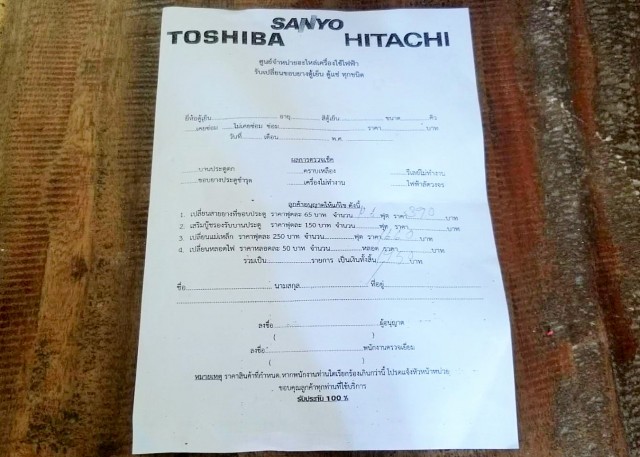 SANYO
TOSHIBA HITACHI
ศูนย์จำหน่ายอะไหล่เครื่องใช้ไฟฟ้า
รับเปลี่ยนขอบยางตู้เย็น ตู้แช่ ทุกชนิด
ยี่ห้อตู้เย็น อายุ สีตู้เย็น ขนาด คิว
เคยซ่อม ไม่เคยซ่อม ซ่อม ราคา บาท
วันที่ เดือน พ.ศ.
ผลการตรวจเช็ค
บานประตูตก คราบเหลือง รีเลย์ไม่ทำงาน
ขอบยางประตูชำรุด เครื่องไม่ทำงาน ไฟฟ้าลัดวงจร
ลูกค้าอนุญาตให้แก้ไข ดังนี้
1. เปลี่ยนสายยางที่ขอบประตู ราคาฟุตละ 65 บาท จำนวน ฟุต ราคา 390 บาท
2. เสริมบู๊ชรองรับบานประตู ราคาฟุตละ 150 บาท จำนวน ฟุต ราคา บาท
3. เปลี่ยนแม่เหล็ก ราคาฟุตละ 250 บาท จำนวน ฟุต ราคา บาท
4. เปลี่ยนหลอดไฟ ราคาหลอดละ 50 บาท จำนวน หลอด ราคา บาท
รวมเป็น รายการ เป็นเงินทั้งสิ้น บาท
ชื่อ นามสกุล ที่อยู่
ลงชื่อ ผู้อนุญาต
( )
ลงชื่อ พนักงานตรวจเยี่ยม
( )
หมายเหตุ ราคาสินค้าที่กำหนด หากพนักงานท่านใดเรียกร้องเกินกว่านี้ โปรดแจ้งหัวหน้าหน่วย
ขอบคุณลูกค้าทุกท่านที่ใช้บริการ
รับประกัน 100 %